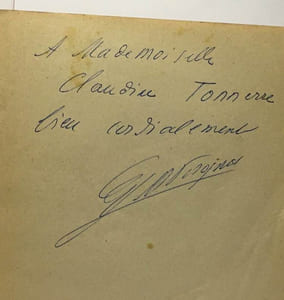 A Mademoiselle
Claudine Tonnerre
bien cordialement